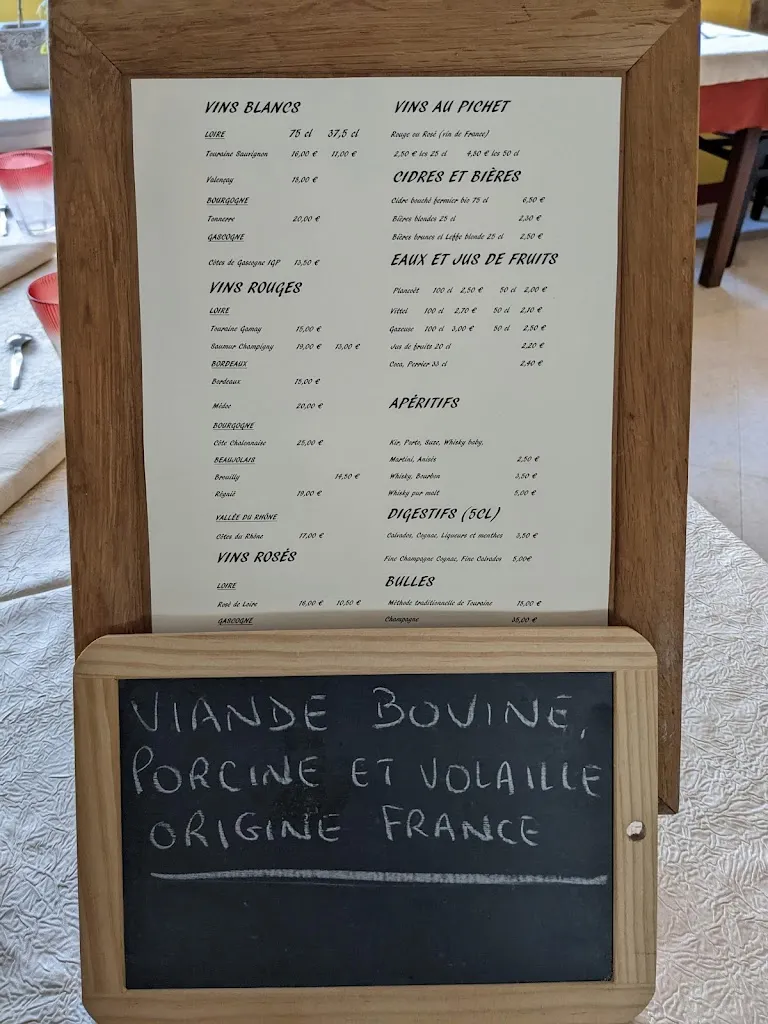 VINS BLANCS
LOIRE 75 cl 37,5 cl
Touraine Sauvignon 16,00 € 11,00 €
Valençay 15,00 €
BOURGOGNE
Tonnerre 20,00 €
GASCOGNE
Côtes de Gascogne IGP 13,50 €
VINS ROUGES
LOIRE
Touraine Gamay 15,00 €
Saumur Champigny 19,00 € 13,00 €
BORDEAUX
Bordeaux 15,00 €
Médoc 20,00 €
BOURGOGNE
Côte Chalonnaise 25,00 €
BEAUJOLAIS
Brouilly 14,50 €
Régnié 19,00 €
VALLÉE DU RHÔNE
Côtes du Rhône 17,00 €
VINS ROSÉS
LOIRE
Rosé de Loire 16,00 € 10,50 €
GASCOGNE
VINS AU PICHET
Rouge ou Rosé (vin de France)
2,50 € les 25 cl 4,50 € les 50 cl
CIDRES ET BIÈRES
Cidre bouché fermier bio 75 cl 6,50 €
Bières blondes 25 cl 2,30 €
Bières brunes et Leffe blonde 25 cl 2,50 €
EAUX ET JUS DE FRUITS
Plancoët 100 cl 2,50 € 50 cl 2,00 €
Vittel 100 cl 2,70 € 50 cl 2,10 €
Gazeuse 100 cl 3,00 € 50 cl 2,50 €
Jus de fruits 20 cl 2,20 €
Coca, Perrier 33 cl 2,40 €
APÉRITIFS
Kir, Porto, Suze, Whisky baby,
Martini, Anisés 2,50 €
Whisky, Bourbon 3,50 €
Whisky pur malt 5,00 €
DIGESTIFS (5CL)
Calvados, Cognac, Liqueurs et menthes 3,50 €
Fine Champagne Cognac, Fine Calvados 5,00€
BULLES
Méthode traditionnelle de Touraine 18,00 €
Champagne 35,00 €
VIANDE BOVINE,
PORCINE ET VOLAILLE
ORIGINE FRANCE